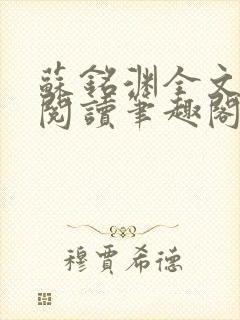 蘇銘淵全文
閱讀筆趣閣
穆賈希德